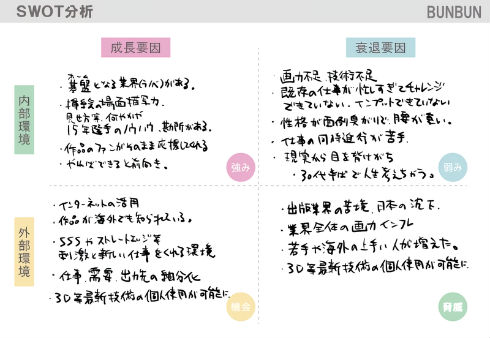 SWOT分析
BUNBUN
成長要因
衰退要因
内部環境
・基盤となる業界(ラノベ)がある。
・構図の場面描写力
見せ方等、何やかや
15年選手のノウハウ、勘所がある。
・作品のファンがそのまま応援してくれる
・やればできると前向き。
強み
・画力不足、技術不足
・既存の仕事が忙しすぎてチャレンジ
できていない、インプットできていない
・性格が面倒臭がりで、腰が重い。
・仕事の同時進行が苦手
・現実から目を背けがち
・30代半ばで人生考えちがう。
弱み
外部環境
・インターネットの活用
・作品が海外でも知られている。
・SSSやストレートエッジ等
刺激と新しい仕事をくれる環境
・仕事、需要、出版の細分化
・3D等最新技術の個人使用が可能に
機会
・出版業界の苦境、日本の沈下
・業界全体の画力インフレ
・若手や海外の上手い人が増えた。
・3D等最新技術の個人使用が可能に
脅威